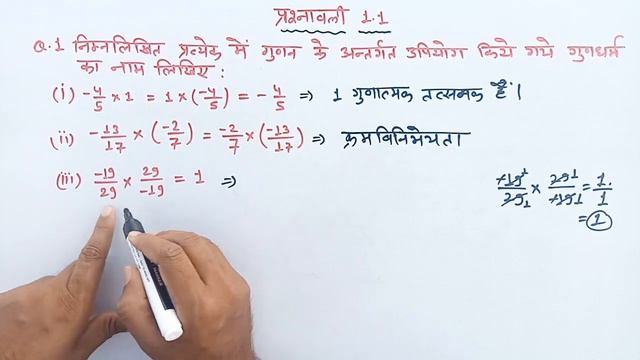 प्रश्नावली 1.1
Q.1 निम्नलिखित प्रत्येक में गुणन के अन्तर्गत उपयोग किये गये गुणधर्म
का नाम लिखिए :
(i) -4/5 × 1 = 1 × (-4/5) = -4/5 ⇒ 1 गुणात्मक तत्समक है।
(ii) -13/17 × (-2/7) = -2/7 × (-13/17) ⇒ क्रमविनिमेयता
(iii) -19/29 × 29/-19 = 1 ⇒
-19 1/29 1 × 29 1/-19 1 = 1/1
= 1